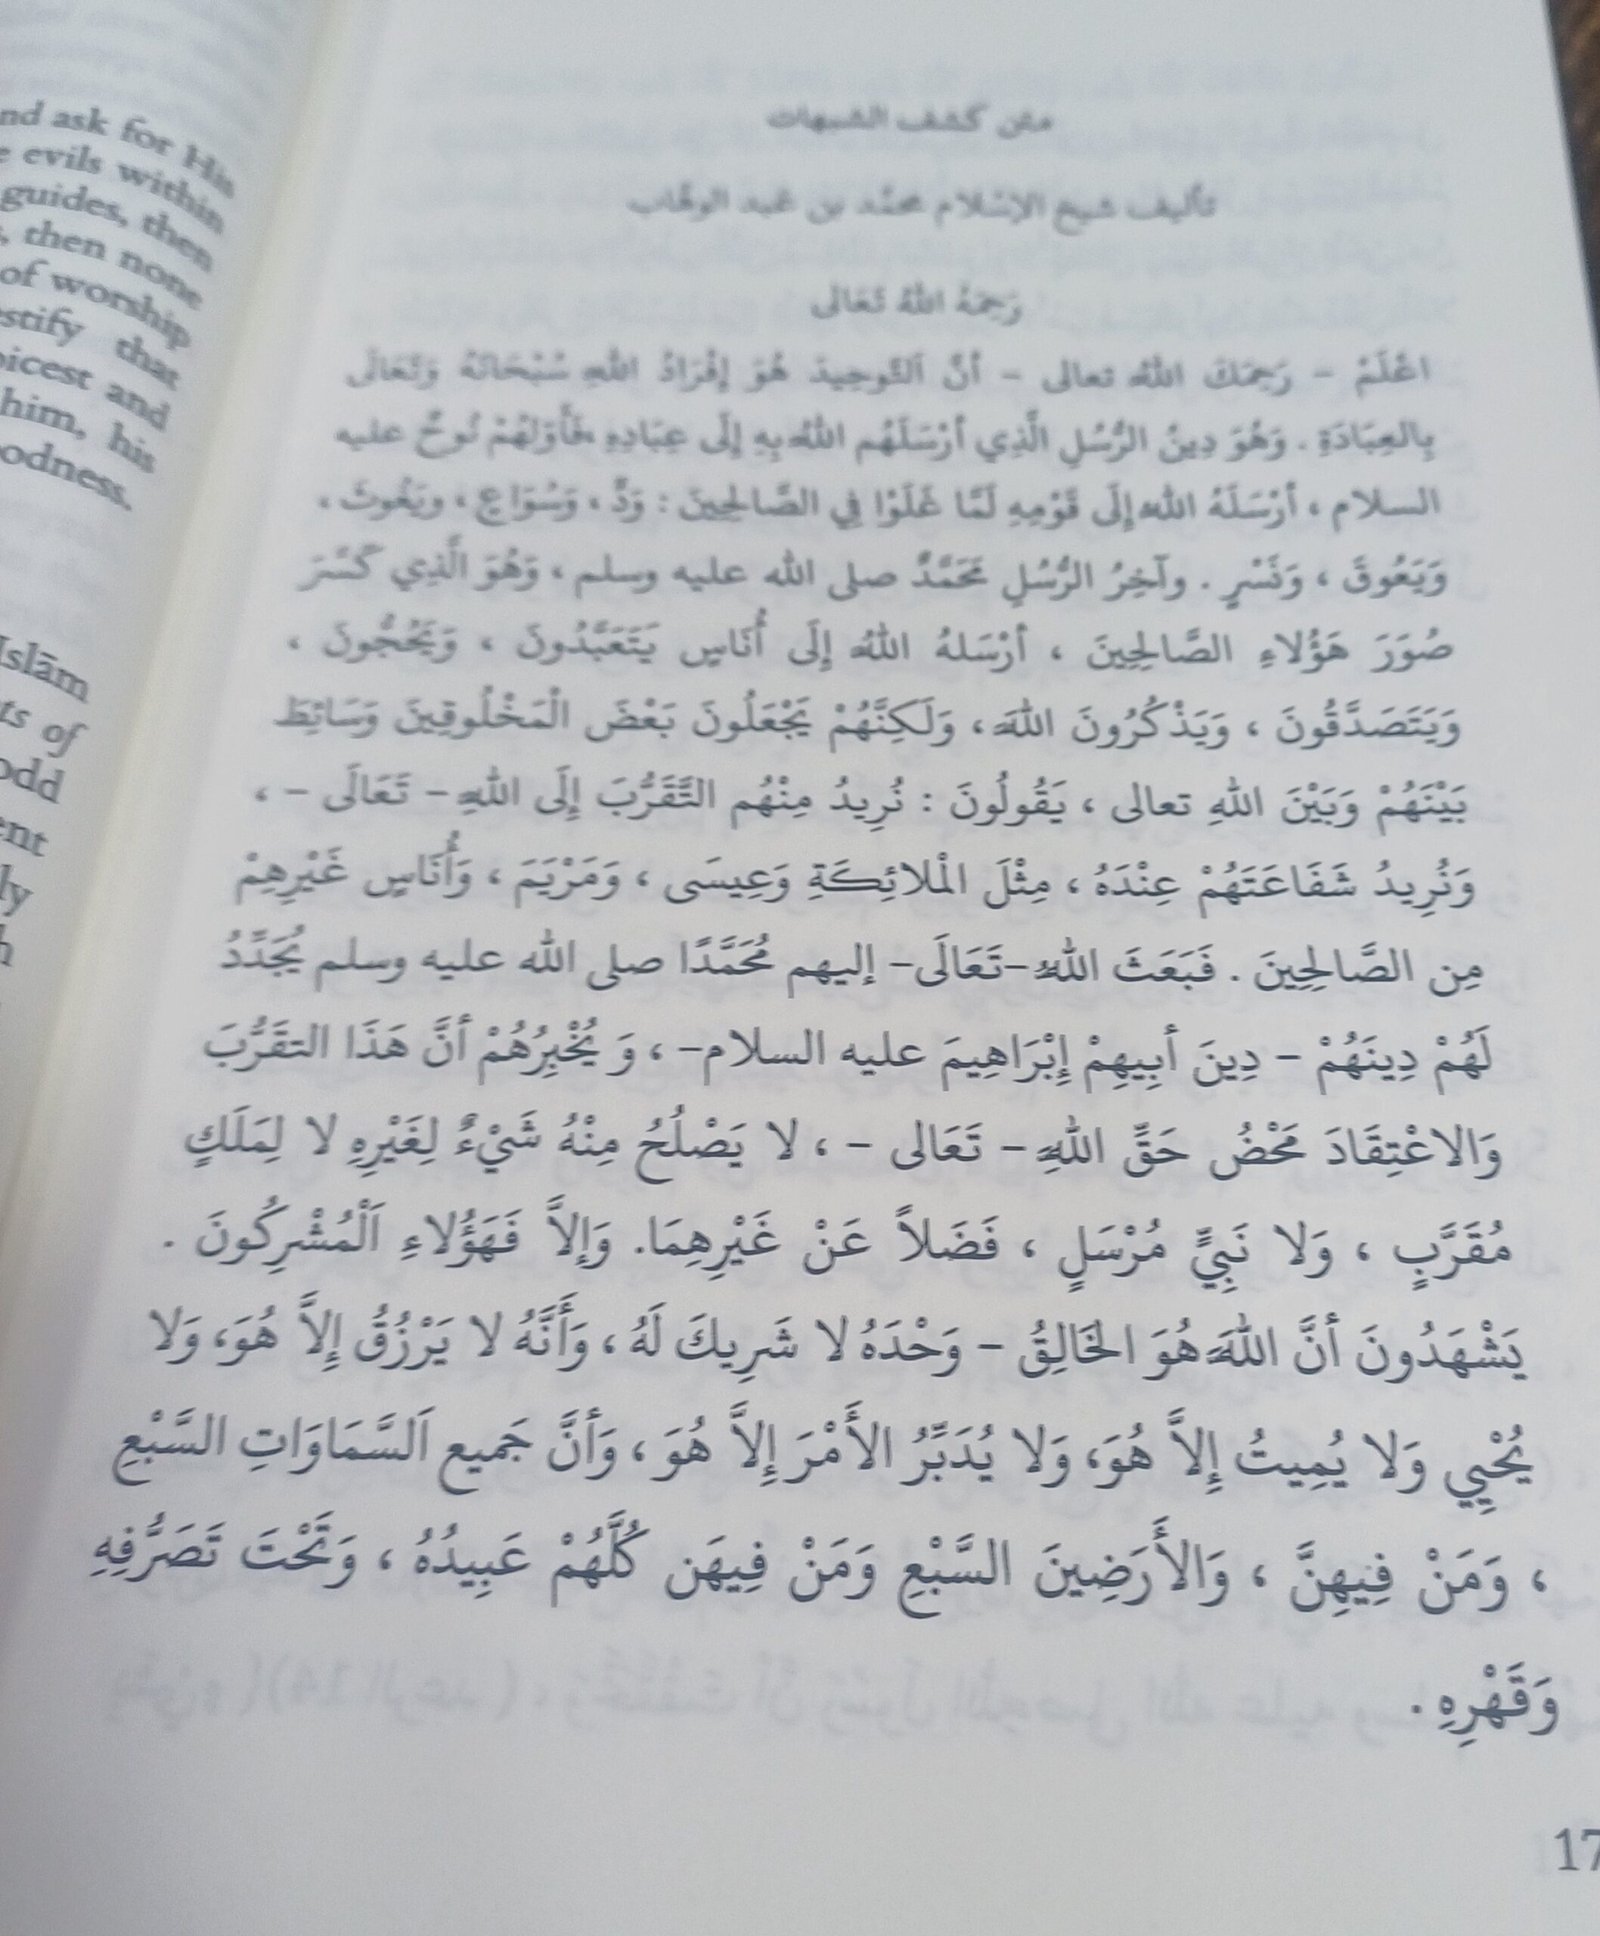 nd ask for His
e evils within
guides, then
, then none
of worship
estify that
oicest and
him, his
oodness.
Islām
ts of
odd
ent
ly
h
متن كشف الشبهات
تأليف شيخ الإسلام محمَّد بن عَبد الوهَّاب
رَحِمَهُ اللهُ تَعَالَى
اعْلَمْ – رَحِمَكَ اللهُ تعالى – أنَّ اَلتَّوحِيدَ هُوَ إفْرَادُ اللهِ سُبْحَانَهُ وَتَعَالَى
بِالعِبَادَةِ . وَهُوَ دِينُ الرُّسُلِ الَّذِي أرْسَلَهُم اللهُ بِهِ إلَى عِبَادِهِ فَأَوَلهُمْ نُوحٌ عليه
السلام ، أرْسَلَهُ اللهُ إلَى قَوْمِهِ لَمَّا غَلَوْا فِي الصَّالِحِينَ : وَدٍّ ، وَسُوَاعٍ ، ويَغُوثَ ،
وَيَعُوقَ ، وَنَسْرٍ . وآخِرُ الرُّسُلِ مُحَمَّدٌ صلى الله عليه وسلم ، وَهُوَ الَّذِي كَسَّرَ
صُوَرَ هَؤُلاءِ الصَّالِحِينَ ، أرْسَلهُ اللهُ إلَى أُنَاسٍ يَتَعَبَّدُونَ ، وَيَحُجُّونَ ،
وَيَتَصَدَّقُونَ ، وَيَذْكُرُونَ اللهَ ، وَلَكِنَّهُمْ يَجْعَلُونَ بَعْضَ الْمَخْلُوقِينَ وَسَائِطَ
بَيْنَهُمْ وَبَيْنَ اللهِ تعالى ، يَقُولُونَ : نُرِيدُ مِنْهُم التَّقَرُّبَ إِلَى اللهِ – تَعَالَى – ،
وَنُرِيدُ شَفَاعَتَهُمْ عِنْدَهُ ، مِثْلَ الْملائِكَةِ وَعِيسَى ، وَمَرْيَمَ ، وَأُنَاسٍ غَيْرِهِمْ
مِن الصَّالِحِينَ . فَبَعَثَ اللهُ –تَعَالَى– إليهم مُحَمَّدًا صلى الله عليه وسلم يُجَدِّدُ
لَهُمْ دِينَهُمْ – دِينَ أبِيهِمْ إِبْرَاهِيمَ عليه السلام– ، وَ يُخْبِرُهُمْ أنَّ هَذَا التقَرُّبَ
وَالاعْتِقَادَ مَحْضُ حَقِّ اللهِ – تَعَالى – ، لا يَصْلُحُ مِنْهُ شَيْءٌ لِغَيْرِهِ لا لِمَلَكٍ
مُقَرَّبٍ ، وَلا نَبِيٍّ مُرْسَلٍ ، فَضَلاً عَنْ غَيْرِهِمَا. وَإلاَّ فَهَؤُلاءِ اَلْمُشْرِكُونَ .
يَشْهَدُونَ أنَّ اللهَ هُوَ الخَالِقُ – وَحْدَهُ لا شَرِيكَ لَهُ ، وَأَنَّهُ لا يَرْزُقُ إِلاَّ هُوَ، وَلا
يُحْيِي وَلا يُمِيتُ إِلاَّ هُوَ، وَلا يُدَبِّرُ الأَمْرَ إِلاَّ هُوَ ، وَأنَّ جَمِيع اَلسَّمَاوَاتِ السَّبْعِ
، وَمَنْ فِيهِنَّ ، وَالأَرَضِينَ السَّبْعِ وَمَنْ فِيهَن كُلَّهُمْ عَبِيدُهُ ، وَتَحْتَ تَصَرُّفِهِ
وَقَهْرِهِ .
17